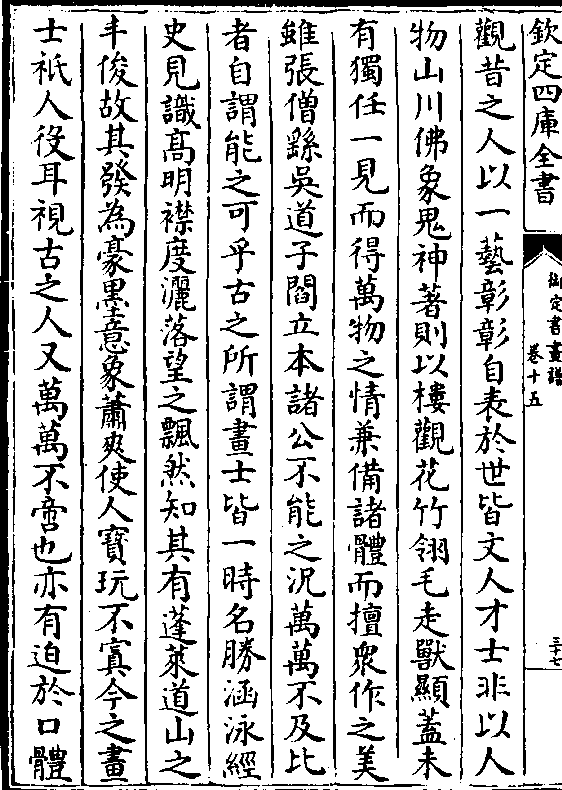 欽定四庫全書
御定書畫譜
卷十五
三十七
觀昔之人以一藝彰彰自表於世皆文人才士非以人
物山川佛象鬼神著則以樓觀花竹翎毛走獸顯蓋未
有獨任一見而得萬物之情兼備諸體而擅衆作之美
雖張僧繇吳道子閻立本諸公不能之況萬萬不及比
者自謂能之可乎古之所謂畫士皆一時名勝涵泳經
史見識髙明襟度灑落望之飄然知其有蓬萊道山之
丰俊故其發為豪墨意象蕭爽使人寶玩不寘今之畫
士祇人役耳視古之人又萬萬不啻也亦有迫於口體